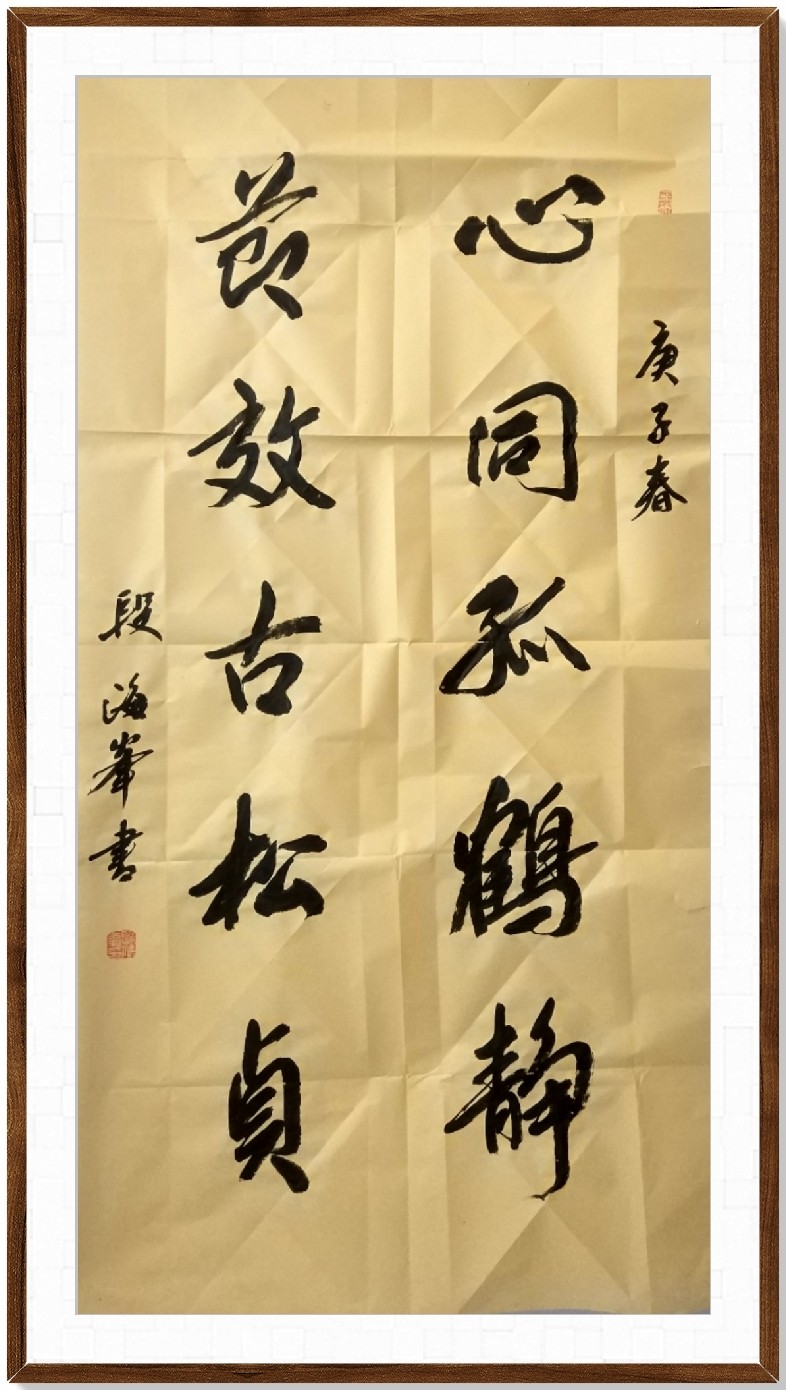 庚子春
心同孤鹤静
节效古松贞
段海峯书